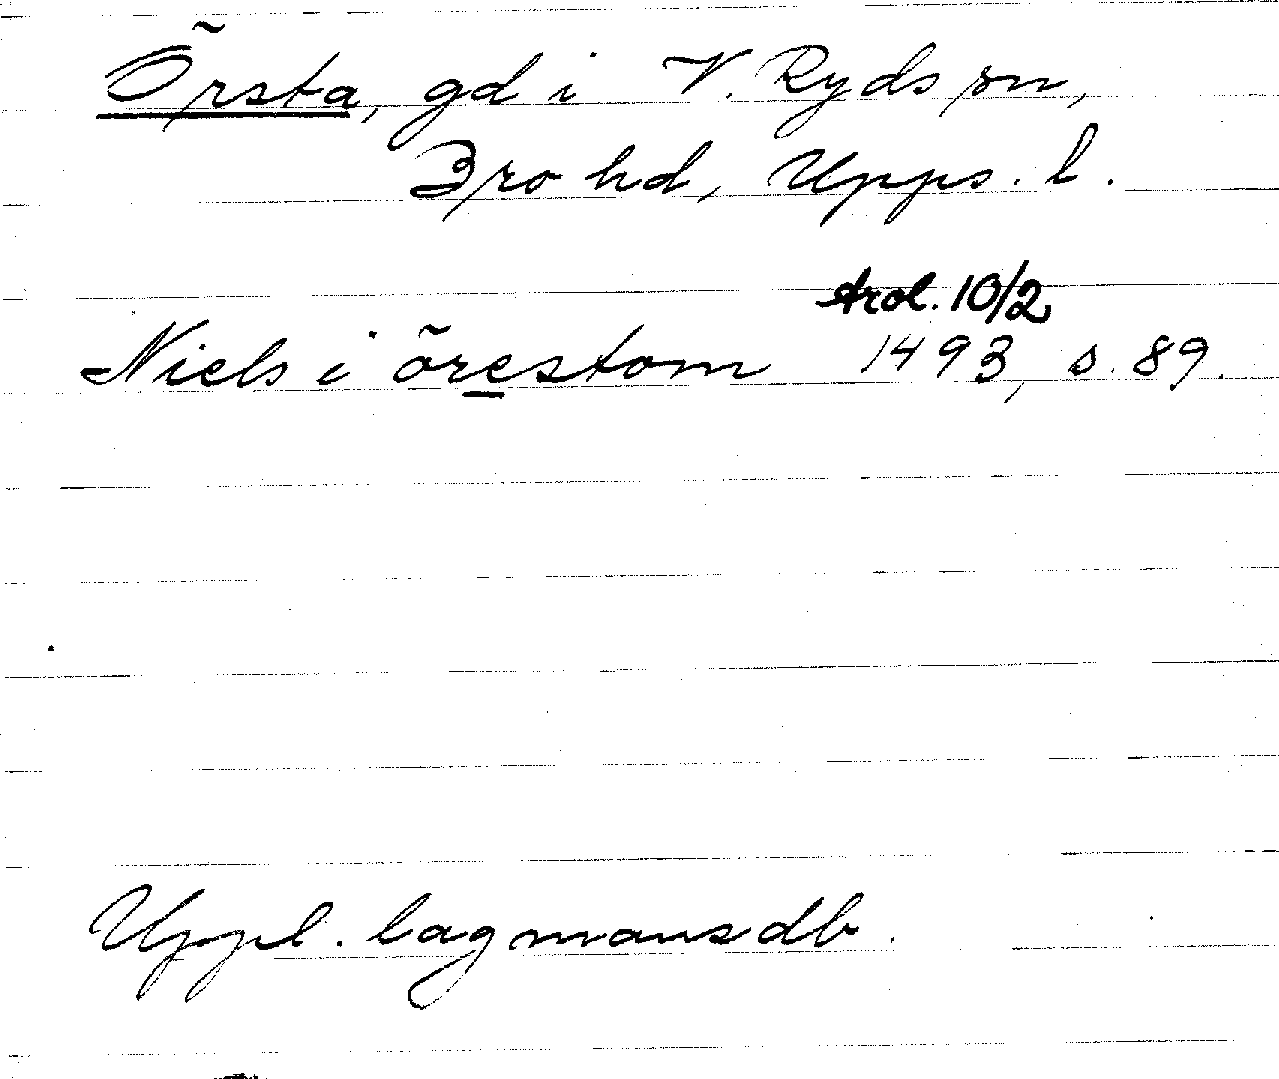 Örsta, gd i V. Ryds sn,
Bro hd, Upps. l.
Arol. 10/2
Niels i örestom 1493, s. 89.
Uppl. lagmansdb.